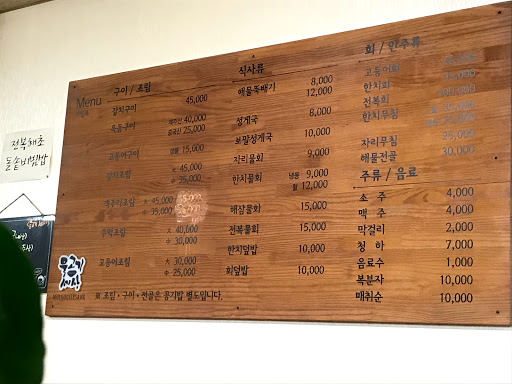 전복해초
돌솥비빔밥
Menu
구이 / 조림
갈치구이 45,000
옥돔구이 제주산 40,000
중국산 25,000
고등어구이 15,000
갈치조림 大 45,000
中 35,000
大 45,000
中 35,000
우럭조림 大 40,000
中 30,000
고등어조림 大 30,000
中 25,000
※ 조림·구이·전골은 공기밥 별도입니다.
식사류
해물뚝배기 8,000
12,000
성게국 8,000
보말성게국 10,000
자리물회 9,000
한치물회 냉동 9,000
활 12,000
해삼물회 15,000
전복물회 15,000
한치덮밥 10,000
회덮밥 10,000
회 / 안주류
고등어회
한치회
전복회
한치무침
자리무침 25,000
해물전골 30,000
주류 / 음료
소 주 4,000
맥 주 4,000
막걸리 2,000
청 하 7,000
음료수 1,000
복분자 10,000
매취순 10,000